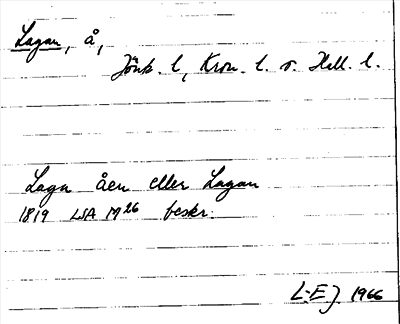 Lagan, å,
Jönk. l., Kron. l. o. Hall. l.
Laga åen eller Lagan
1819 LSA M26 beskr.
L-EJ 1966